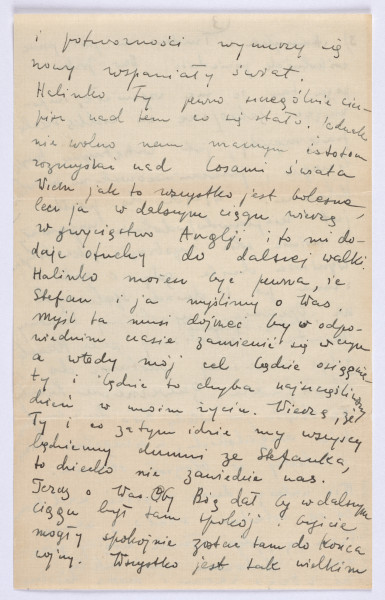 3
i potworności wynurzy się
nowy wspaniały świat.
Halinko Ty pewno szczególnie cier-
pisz nad tem co się stało. Jednak
nie wolno nam marnym istotom
rozmyślać nad losami świata
Wiem jak to wszystko jest bolesne,
lecz ja w dalszym ciągu wierzę
w zwycięstwo Anglji i to mi do-
daje otuchy do dalszej walki
Halinko możesz być pewna, że
Stefan i ja myślimy o Was,
myśl ta musi dojrzeć by w odpo-
wiednim czasie zamienić się w czyn
a wtedy mój cel będzie osiągnię
ty i będzie to chyba najszczęśliwszy
dzień w moim życiu. Wierzę, że
Ty i co zatym idzie my wszyscy
będziemy dumni ze Stefanka,
to dziecko nie zawiedzie nas.
Teraz o Was. Oby Bóg dał by w dalszym
ciągu był tam spokój i byście
mogły spokojnie zostać tam do końca
wojny. Wszystko jest tak wielkim